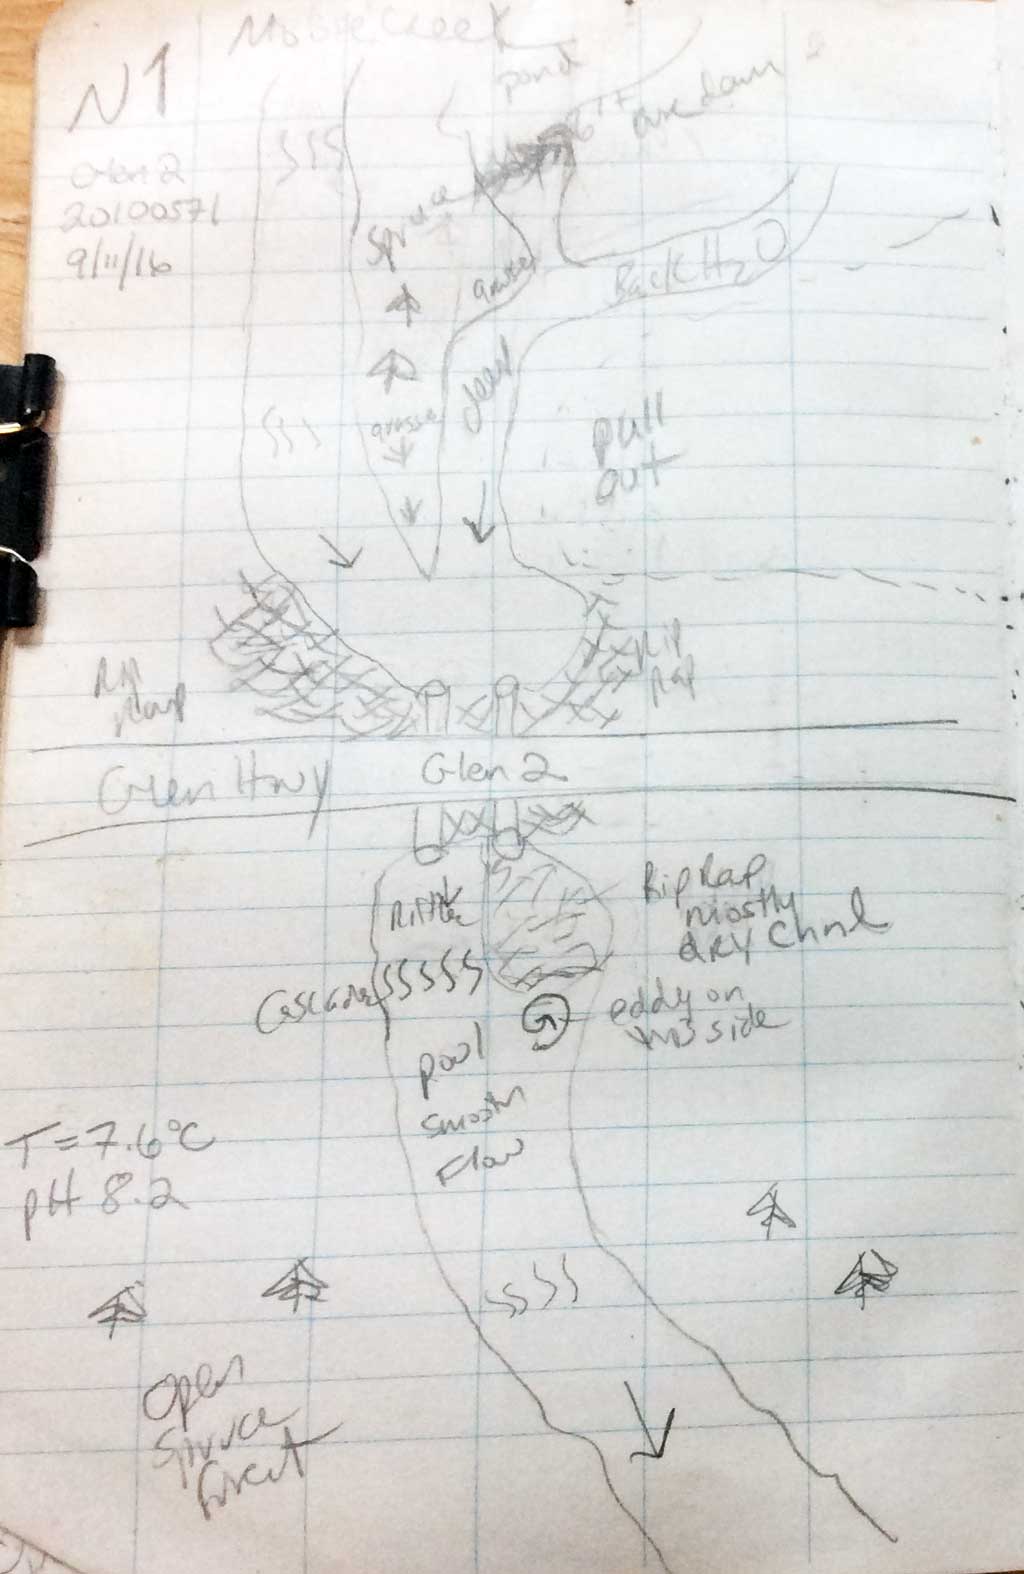 Moose Creek
N↑
Glen 2
20100571
9/11/16
pond
6 ft
down
Spruce
grasses
Back H2O
deep
grasses
pull
out
Rip
Rap
Rip
Rap
Glen Hwy
Glen 2
Riffle
Rip Rap
mostly
dry Chnl
Cascade
eddy on
side
pool
smooth
Flow
T = 7.6°C
pH 8.2
Open
Spruce
Forest